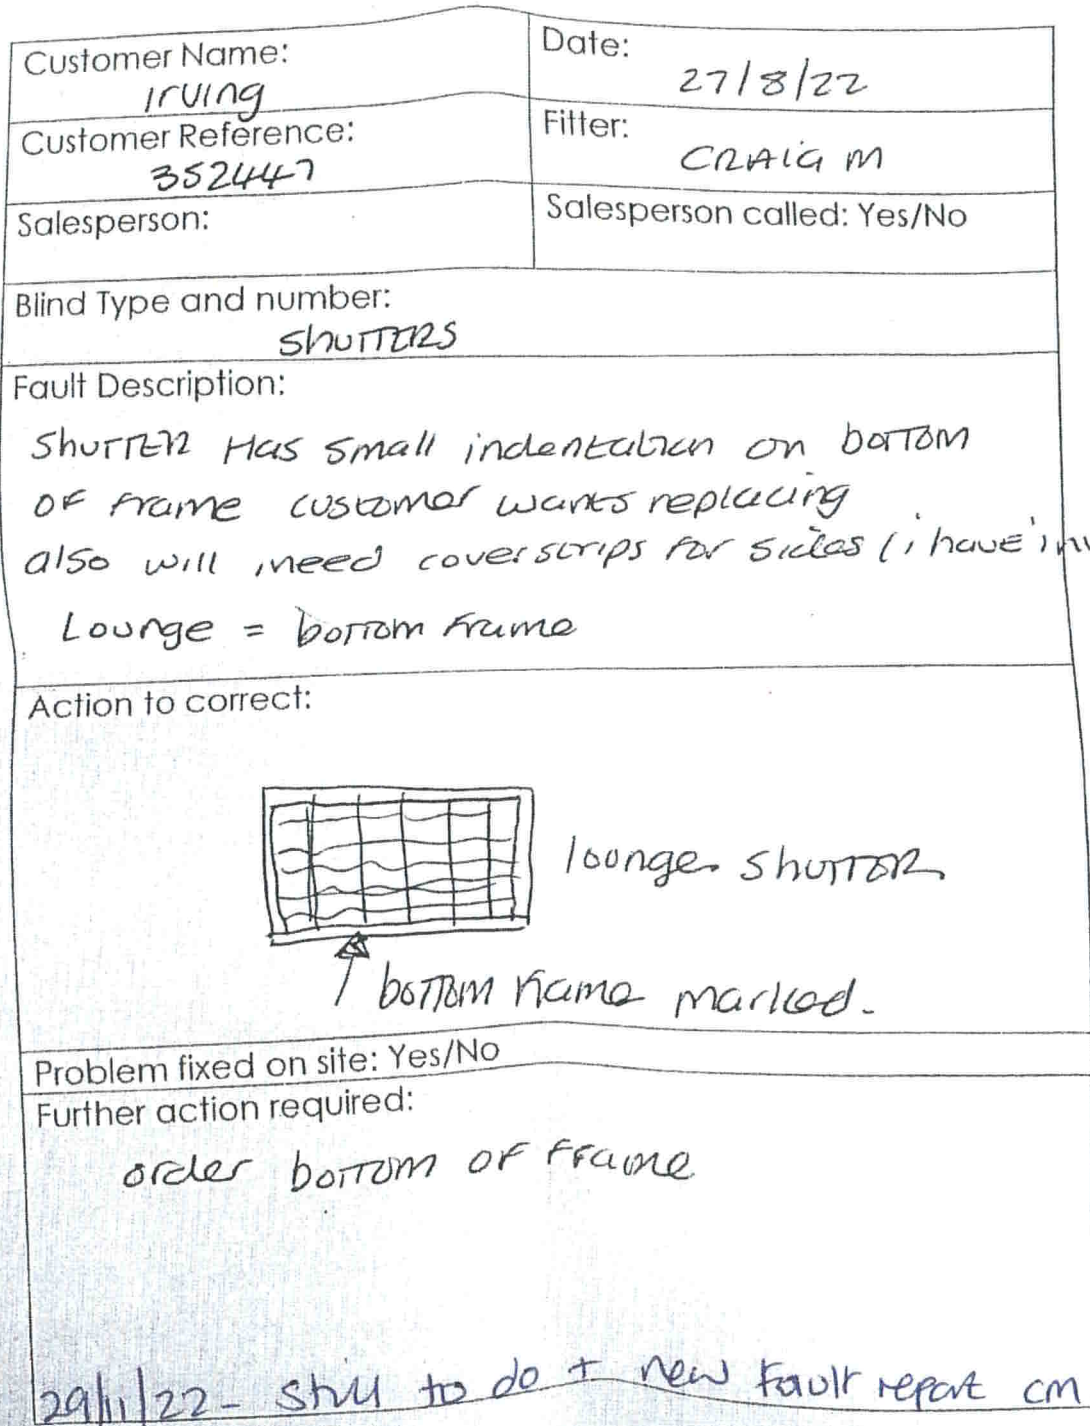 Customer Name:
Irving
Date:
27/8/22
Customer Reference:
352447
Fitter:
CRAIG M
Salesperson:
Salesperson called: Yes/No
Blind Type and number:
Shutters
Fault Description:
Shutter Has small indentation on bottom
of frame customer wants replacing
also will need coverstrips for sides (i have in
Lounge = bottom frame
Action to correct:
lounge shutter
bottom frame marked.
Problem fixed on site: Yes/No
Further action required:
order bottom of frame
29/11/22 - still to do + new fault report cm